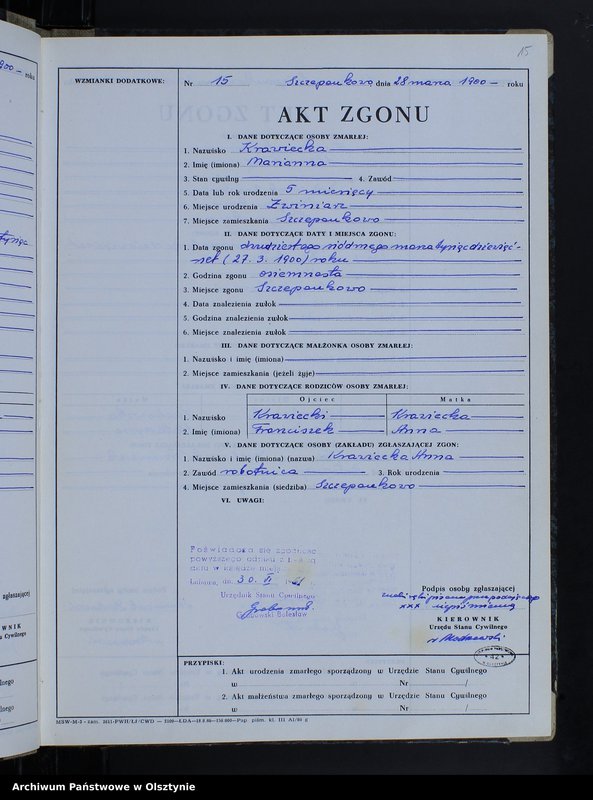 15
WZMIANKI DODATKOWE:
Nr 15 Szczepankowo dnia 28 marca 1900 — roku
AKT ZGONU
I. DANE DOTYCZĄCE OSOBY ZMARŁEJ:
1. Nazwisko Krawiecka
2. Imię (imiona) Marianna
3. Stan cywilny — 4. Zawód —
5. Data lub rok urodzenia 5 miesięcy
6. Miejsce urodzenia Zwiniarz
7. Miejsce zamieszkania Szczepankowo
II. DANE DOTYCZĄCE DATY I MIEJSCA ZGONU:
1. Data zgonu dwudziestego siódmego marca tysiąc dziewięć-
set (27. 3. 1900) roku
2. Godzina zgonu osiemnasta
3. Miejsce zgonu Szczepankowo
4. Data znalezienia zwłok
5. Godzina znalezienia zwłok
6. Miejsce znalezienia zwłok
III. DANE DOTYCZĄCE MAŁŻONKA OSOBY ZMARŁEJ:
1. Nazwisko i imię (imiona)
2. Miejsce zamieszkania (jeżeli żyje)
IV. DANE DOTYCZĄCE RODZICÓW OSOBY ZMARŁEJ:
Ojciec Matka
1. Nazwisko Krawiecki Krawiecka
2. Imię (imiona) Franciszek Anna
V. DANE DOTYCZĄCE OSOBY (ZAKŁADU) ZGŁASZAJĄCEJ ZGON:
1. Nazwisko i imię (imiona) (nazwa) Krawiecka Anna
2. Zawód robotnica 3. Rok urodzenia
4. Miejsce zamieszkania (siedziba) Szczepankowo
VI. UWAGI:
Poświadcza się zgodność
powyższego odpisu z treścią
aktu w księdze
Lubawa, dn. 30. XI
Urzędnik Stanu Cywilnego
Bolesław
Podpis osoby zgłaszającej
xxx niepiśmienną
KIEROWNIK
Urzędu Stanu Cywilnego
PRZYPISKI:
1. Akt urodzenia zmarłego sporządzony w Urzędzie Stanu Cywilnego
w Nr /
2. Akt małżeństwa zmarłego sporządzony w Urzędzie Stanu Cywilnego
w Nr /
Archiwum Państwowe w Olsztynie